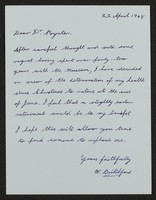 22 April 1968
Dear Dr. Poynter,
After careful thought and with some
regret having spent over forty-two
years with the Museum, I have decided
in view of the deterioration of my health
since Christmas to retire at the end
of June. I feel that a slightly earlier
retirement would be to my benefit.
I hope this will allow you time
to find someone to replace me.
Yours faithfully
W. Britchford